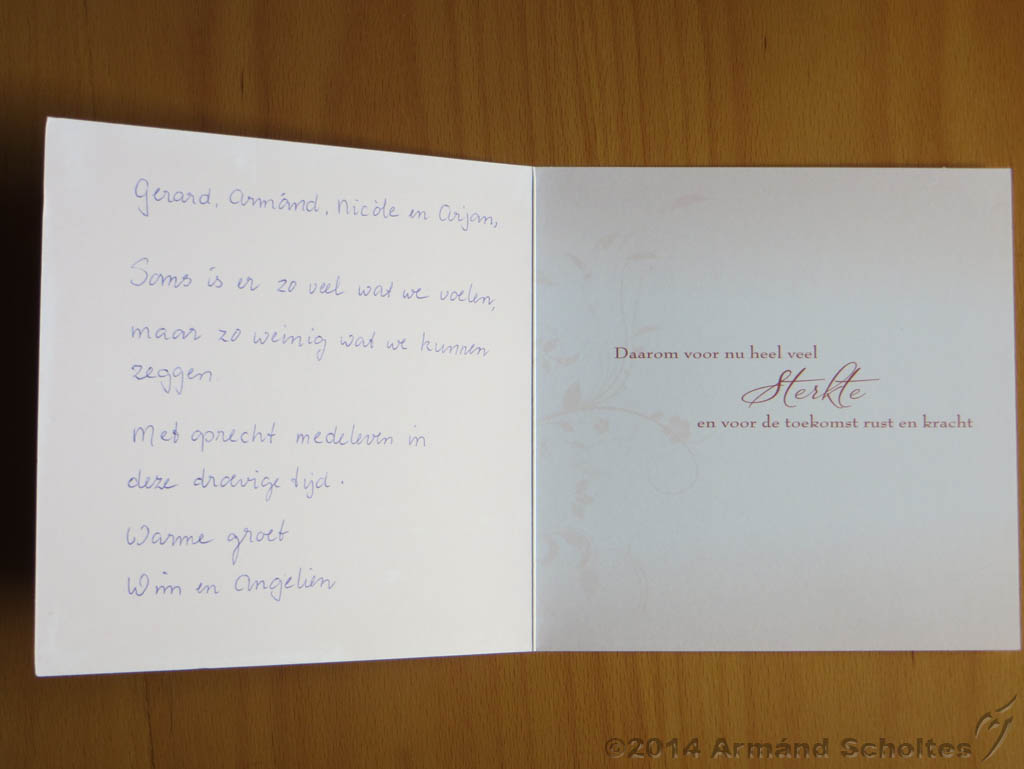 Gerard, Armánd, Nicòle en Arjan,
Soms is er zo veel wat we voelen,
maar zo weinig wat we kunnen
zeggen.
Met oprecht medeleven in
deze droevige tijd.
Warme groet
Wim en Angelien
Daarom voor nu heel veel
Sterkte
en voor de toekomst rust en kracht
©2014 Armánd Scholtes